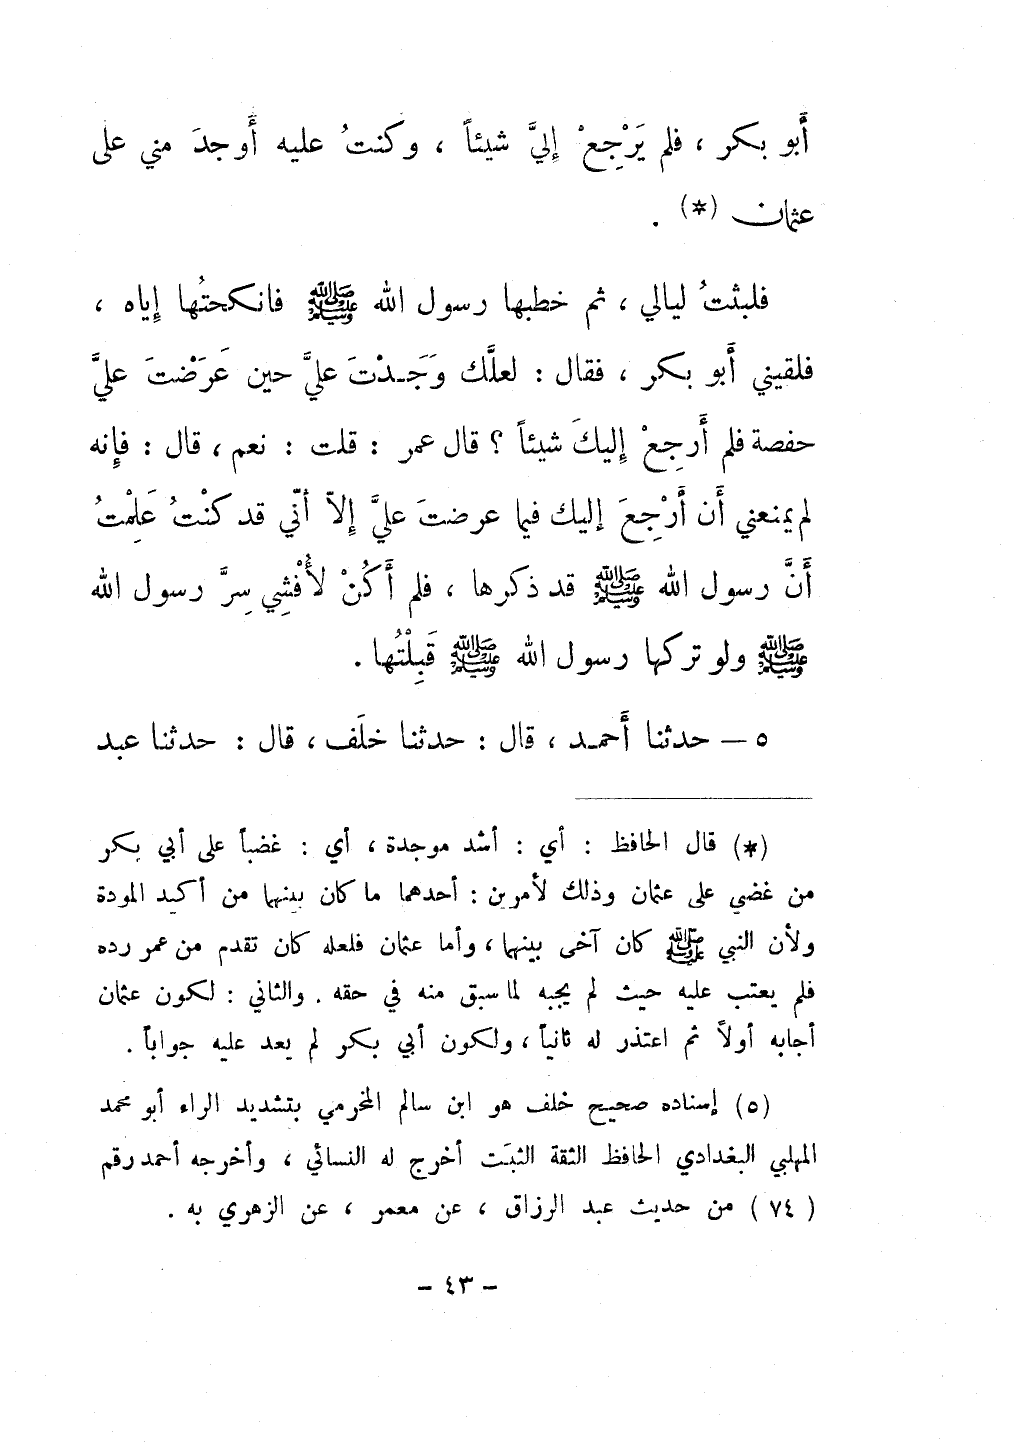 أَبو بكر ، فلم يَرْجِعْ إِليَّ شيئاً ، وكنتُ عليه أَوجدَ مني على
عثمان (*) .
فلبثتُ ليالي ، ثم خطبها رسول الله ﷺ فانكحتُها إِياه ،
فلقيني أَبو بكر ، فقال : لعلَّك وَجَدْتَ عليَّ حين عَرَضْتَ عليَّ
حفصة فلم أَرجِعْ إِليكَ شيئاً ؟ قال عمر : قلت : نعم ، قال : فإِنه
لم يمنعني أَن أَرْجِعَ إليك فيما عرضتَ عليَّ إِلاّ أنّي قد كنْتُ عَلِمْتُ
أَنَّ رسول الله ﷺ قد ذكرها ، فلم أَكُنْ لأُفْشِي سِرَّ رسول الله
ﷺ ولو تركها رسول الله ﷺ قَبِلْتُها .
٥ — حدثنا أَحمد ، قال : حدثنا خلَف ، قال : حدثنا عبد
(*) قال الحافظ : أي : أشد موجدة ، أي : غضباً على أبي بكر
من غضبي على عثمان وذلك لأمرين : أحدهما ما كان بينهما من أكيد المودة
ولأن النبي ﷺ كان آخى بينهما ، وأما عثمان فلعله كان تقدم من عمر رده
فلم يعتب عليه حيث لم يجبه لما سبق منه في حقه . والثاني : لكون عثمان
أجابه أولاً ثم اعتذر له ثانياً ، ولكون أبي بكر لم يعد عليه جواباً .
(٥) إسناده صحيح خلف هو ابن سالم المخرمي بتشديد الراء أبو محمد
المهلبي البغدادي الحافظ الثقة الثبَت أخرج له النسائي ، وأخرجه أحمد رقم
( ٧٤ ) من حديث عبد الرزاق ، عن معمر ، عن الزهري به .
- ٤٣ -